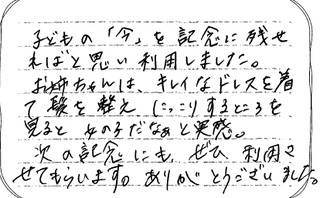 子どもの「今」を記念に残せ
ればと思い利用しました。
お姉ちゃんは、キレイなドレスを着
て髪を整え にっこりするところを
見ると 女の子だなぁと実感。
次の記念にも、ぜひ 利用さ
せてもらいます。ありがとうございました。